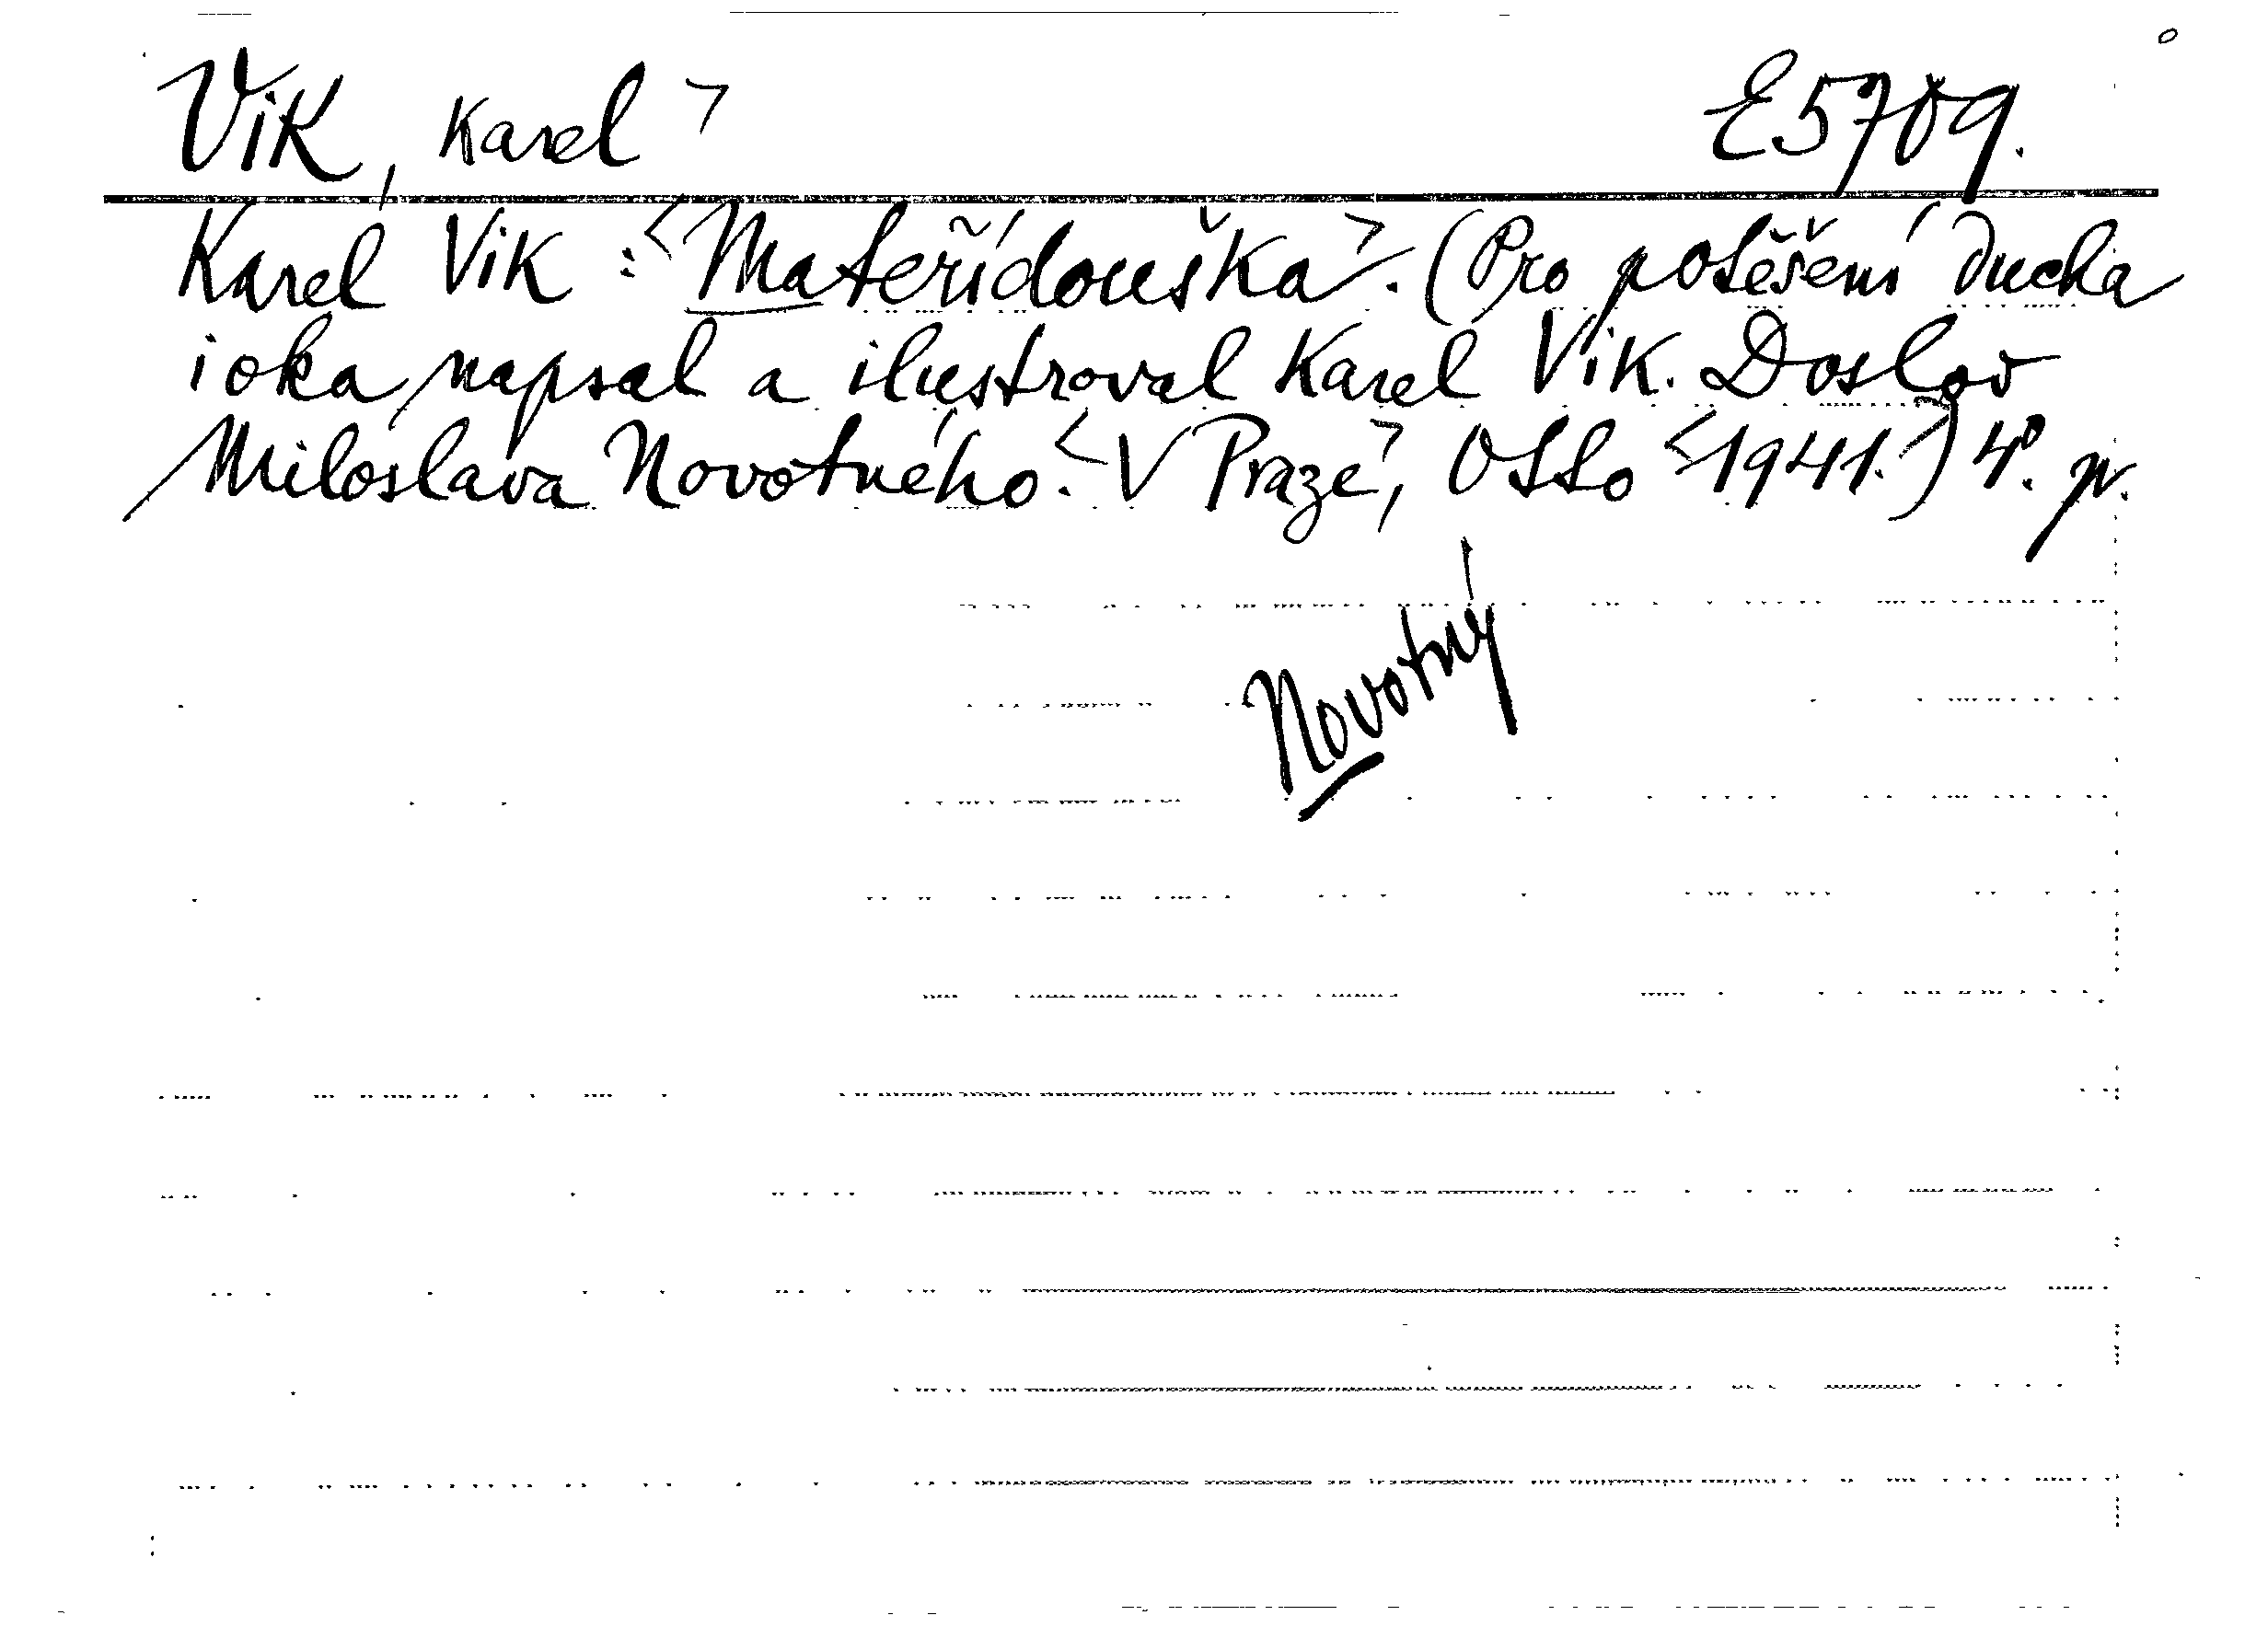 Vik, Karel > E5709.
Karel Vik : <Mateřídouška>. (Pro potěšení ducha
i oka napsal a ilustroval Karel Vik. Doslov
Miloslava Novotného. <V Praze>, Otto <1941.) 4°. pv.
Novotný